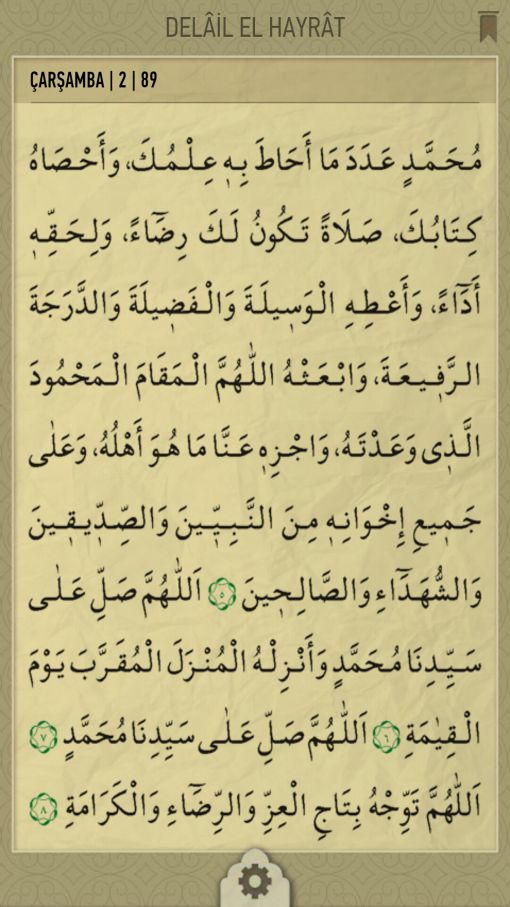 DELÂİL EL HAYRÂT
ÇARŞAMBA | 2 | 89
مُحَمَّدٍ عَدَدَ مَا أَحَاطَ بِهِ عِلْمُكَ، وَأَحْصَاهُ
كِتَابُكَ، صَلَاةً تَكُونُ لَكَ رِضَٓاءً، وَلِحَقِّهِ
أَدَٓاءً، وَأَعْطِهِ الْوَسِيلَةَ وَالْفَضِيلَةَ وَالدَّرَجَةَ
الرَّفِيعَةَ، وَابْعَثْهُ اللّٰهُمَّ الْمَقَامَ الْمَحْمُودَ
الَّذِى وَعَدْتَهُ، وَاجْزِهِ عَنَّا مَا هُوَ أَهْلُهُ، وَعَلٰى
جَمِيعِ إِخْوَانِهِ مِنَ النَّبِيِّينَ وَالصِّدِّيقِينَ
وَالشُّهَدَٓاءِ وَالصَّالِحِينَ ٥ اَللّٰهُمَّ صَلِّ عَلٰى
سَيِّدِنَا مُحَمَّدٍ وَأَنْزِلْهُ الْمُنْزَلَ الْمُقَرَّبَ يَوْمَ
الْقِيٰمَةِ ٦ اَللّٰهُمَّ صَلِّ عَلٰى سَيِّدِنَا مُحَمَّدٍ ٧
اَللّٰهُمَّ تَوِّجْهُ بِتَاجِ الْعِزِّ وَالرِّضَٓاءِ وَالْكَرَامَةِ ٨